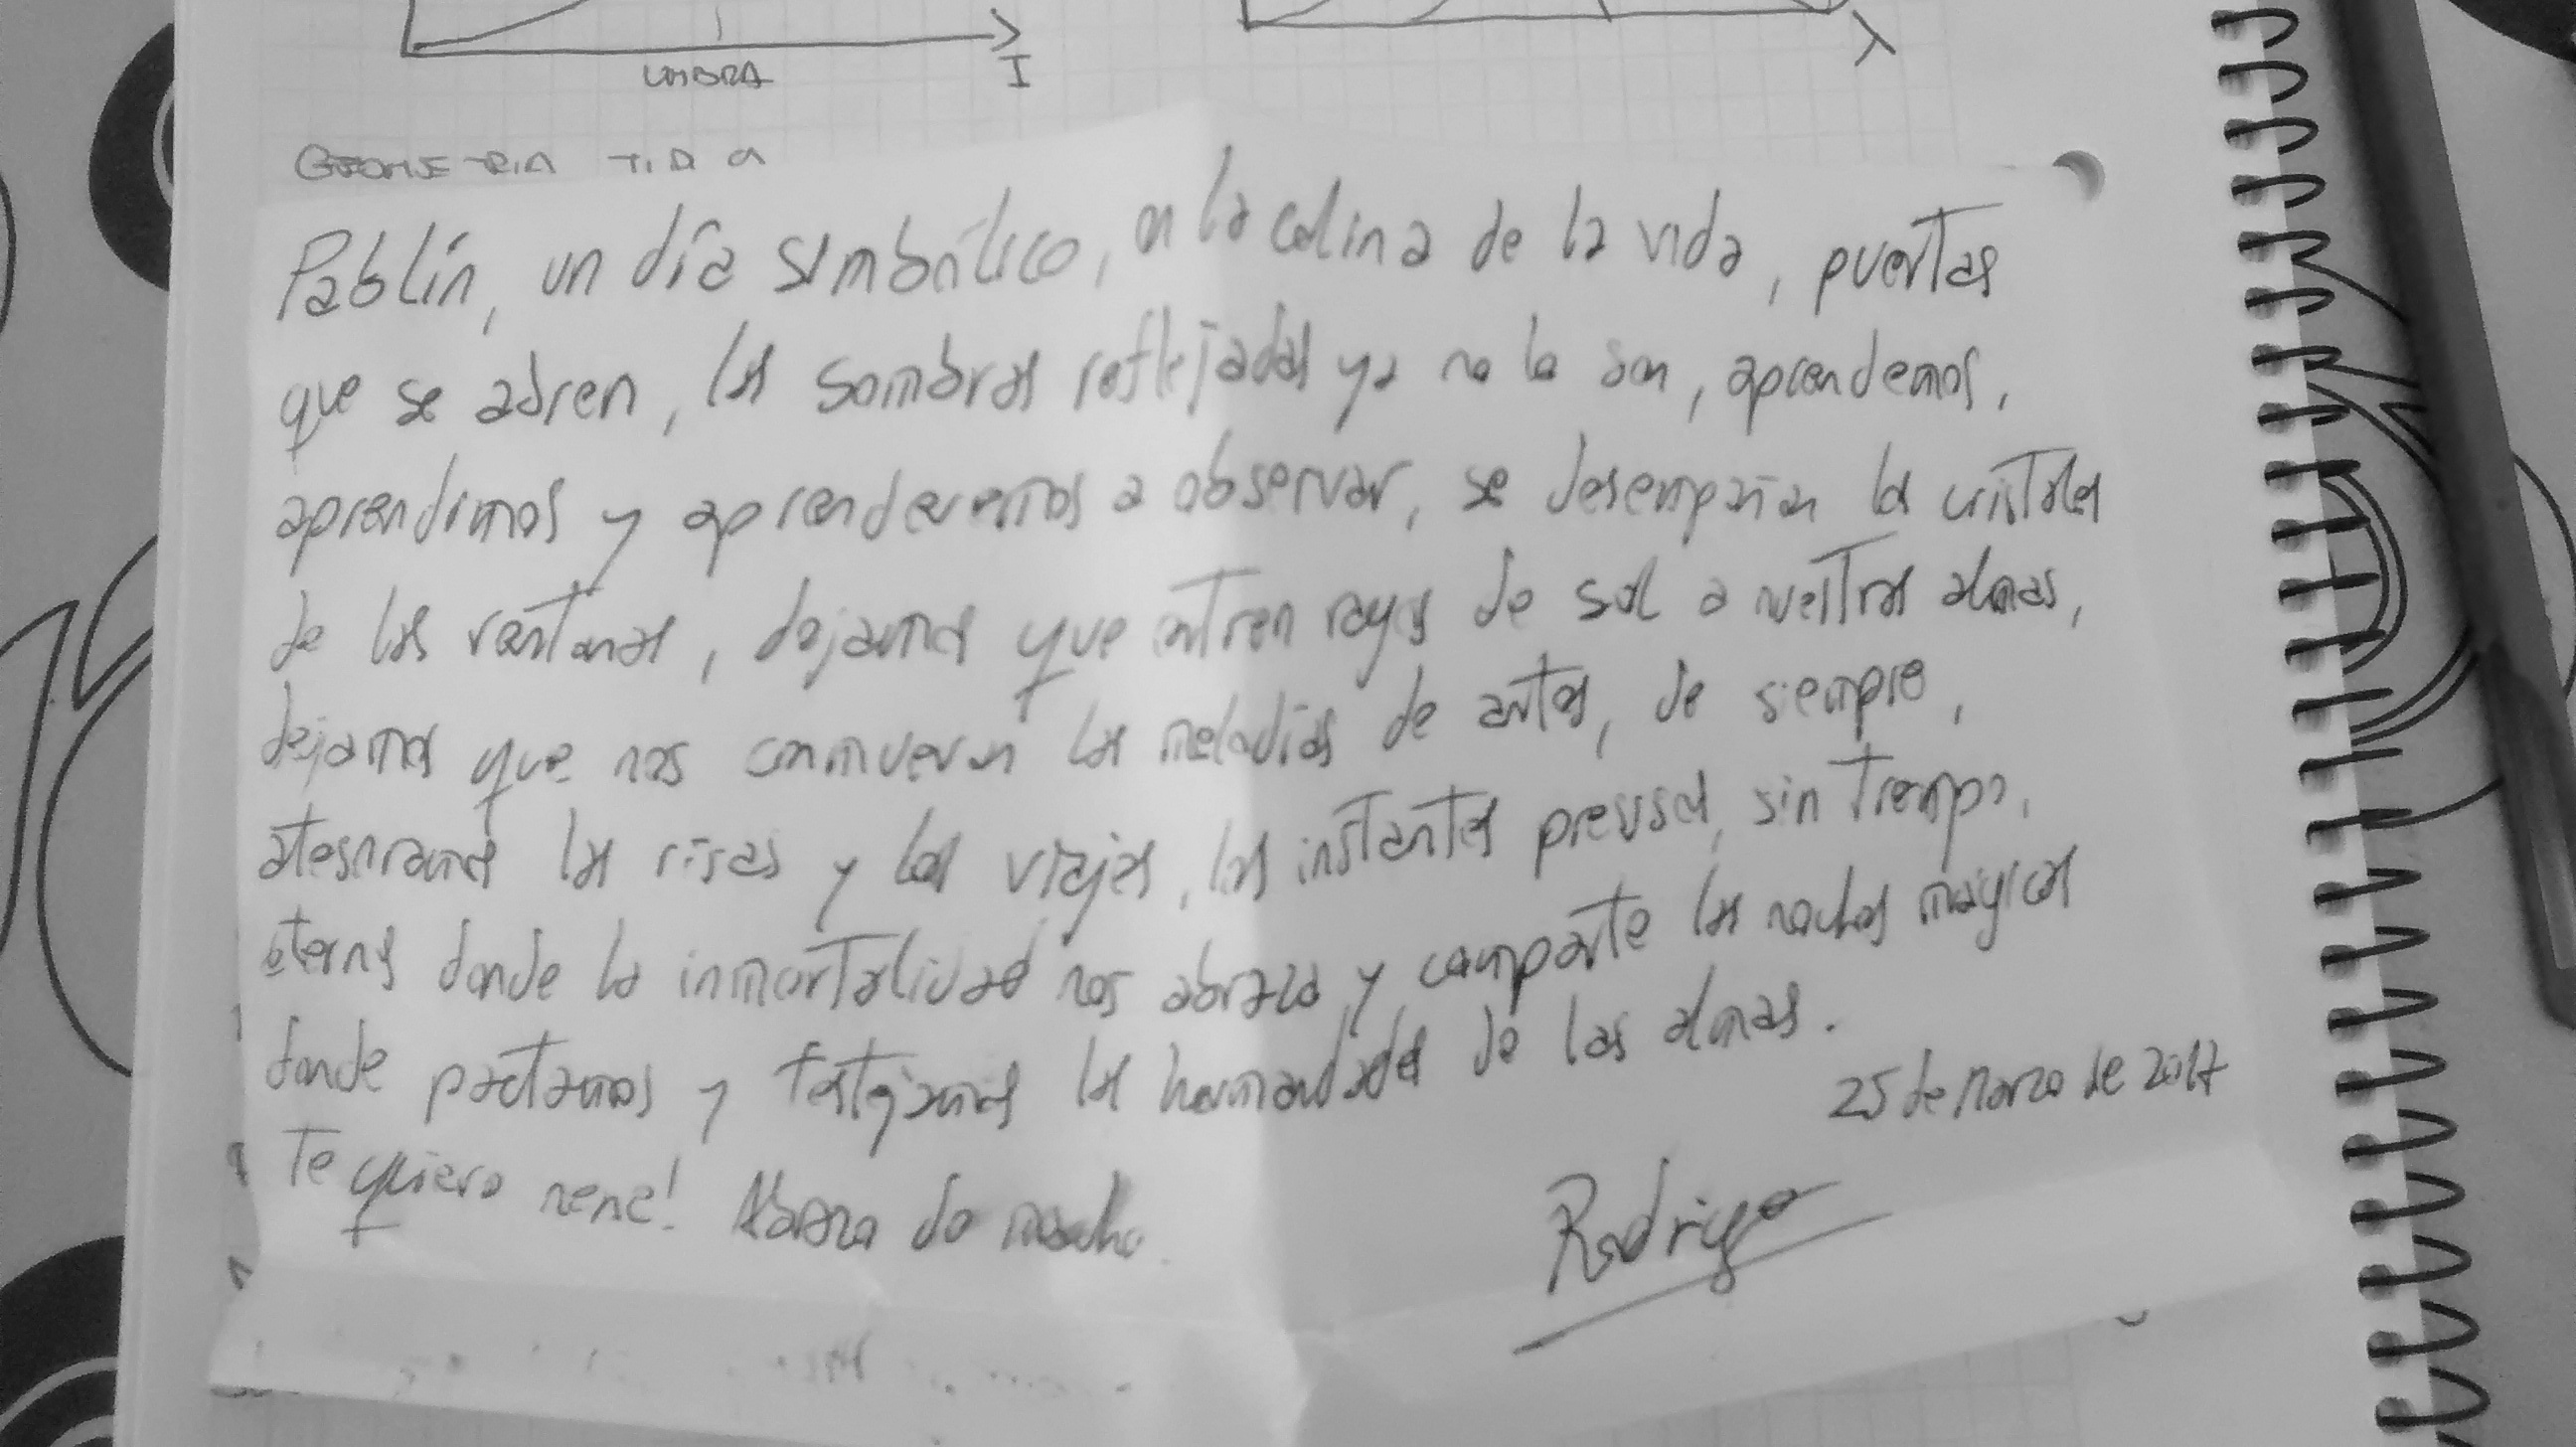 UMBRA
I
λ
GEOMETRIA
Pablín, un día simbólico, en la colina de la vida, puertas
que se abren, las sombras reflejadas ya no lo son, aprendemos,
aprendimos y aprenderemos a observar, se desempañan los cristales
de las ventanas, dejamos que entren rayos de sol a nuestras almas,
dejamos que nos conmuevan las melodías de antes, de siempre,
atesoramos las risas y los viajes, los instantes preciosos, sin tiempo,
eternos donde la inmortalidad nos abraza y comparte las noches mágicas
donde pactamos y festejamos las hermandades de las almas.
25 de Marzo de 2017
Te quiero nene! Abrazo de macho.
Rodrigo